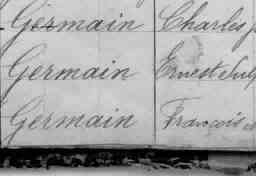 Germain Charles
Germain Ernest
Germain François